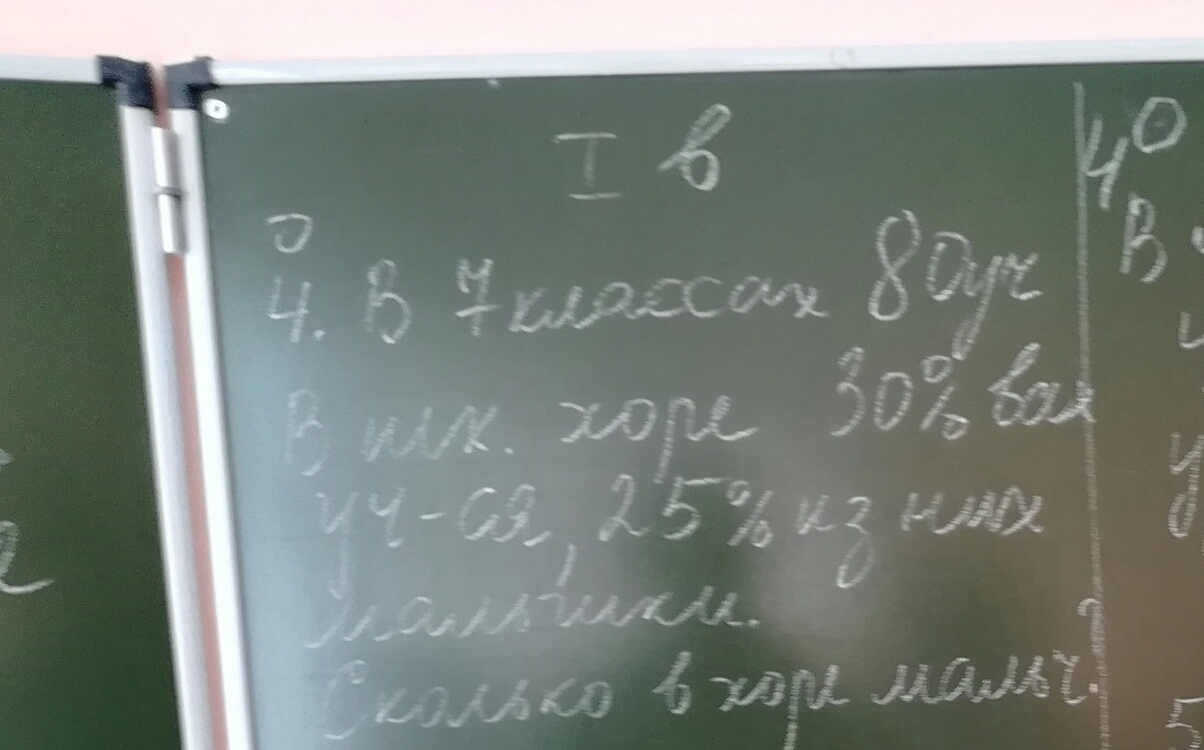 I в
4. В 7 классах 80 уч
В шк. хоре 30% всех
уч-ся, 25% из них
мальчики.
Сколько в хоре мальч?
4
В